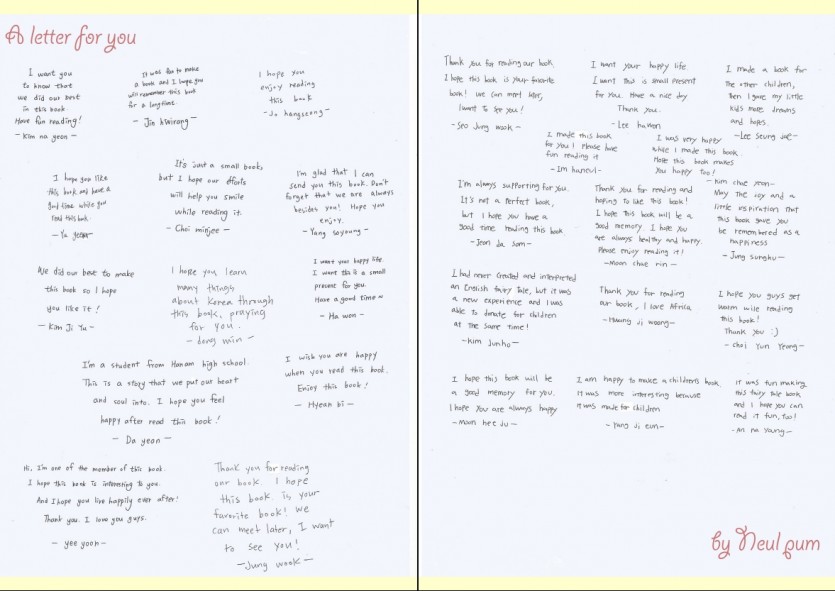 A letter for you
I want you
to know that
we did our best
in this book
Have fun reading!
- Kim na yeon -
It was fun to make
a book and I hope you
will remember this book
for a longtime.
- Jin hwirang -
I hope you
enjoy reading
this book
- Jo hangseong -
I hope you like
this book and have a
good time while you
read this book.
- Yu yeon -
It's just a small book,
but I hope our efforts
will help you smile
while reading it.
- Choi minjee -
I'm glad that I can
send you this book. Don't
forget that we are always
besides you! Hope you
enjoy.
- Yang soyoung -
We did our best to make
this book so I hope
you like it!
- Kim Ji Yu -
I hope you learn
many things
about Korea through
this book, praying
for you.
- dong min -
I want your happy life.
I want this is a small
present for you.
Have a good time ~
- Ha won -
I'm a student from Hanam high school.
This is a story that we put our heart
and soul into. I hope you feel
happy after read this book!
- Da yeon -
I wish you are happy
when you read this book.
Enjoy this book!
- Hyeon bi -
Hi, I'm one of the member of this book.
I hope this book is interesting to you.
And I hope you live happily ever after!
Thank you. I love you guys.
- yee yoon -
Thank you for reading
our book. I hope
this book is your
favorite book! We
can meet later, I want
to see you!
- Jung wook -
Thank you for reading our book
I hope this book is your favorite
book! We can meet later,
I want to see you!
- Seo Jung wook -
I want your happy life.
I want this is small present
for you. Have a nice day
Thank you.
- Lee hawon
I made a book for
the other children,
then I gave my little
kids more dreams
and hopes.
- Lee Seung jae -
I made this book
for you! Please have
fun reading it
- Im haneul -
I was very happy
while I made this book.
Hope this book makes
you happy too!
- Kim chae yeon -
I'm always supporting for you.
It's not a perfect book,
but I hope you have a
good time reading this book
- Jeon da som -
Thank you for reading and
hoping to like this book!
I hope this book will be a
good memory. I hope you
are always healthy and happy.
Please enjoy reading it!
- Moon chae rin -
May the joy and a
little inspiration that
this book gave you
be remembered as a
happiness
- Jung sunghu -
I had never created and interpreted
an English fairy Tale, but it was
a new experience and I was
able to donate for children
at the same time!
- Kim Junho -
Thank you for reading
our book, I love Africa
- Hwang ji woong -
I hope you guys get
warm wile reading
this book!
Thank you :)
- Choi Yun Yeong -
I hope this book will be
a good memory for you.
I hope You are always happy
- Moon hee Ju -
I am happy to make a children's book.
It was more interesting because
it was made for children
- Yang Ji eun -
It was fun making
this fairy tale book
and I hope you can
read it fun, too!
- An na young -
by Neul pum